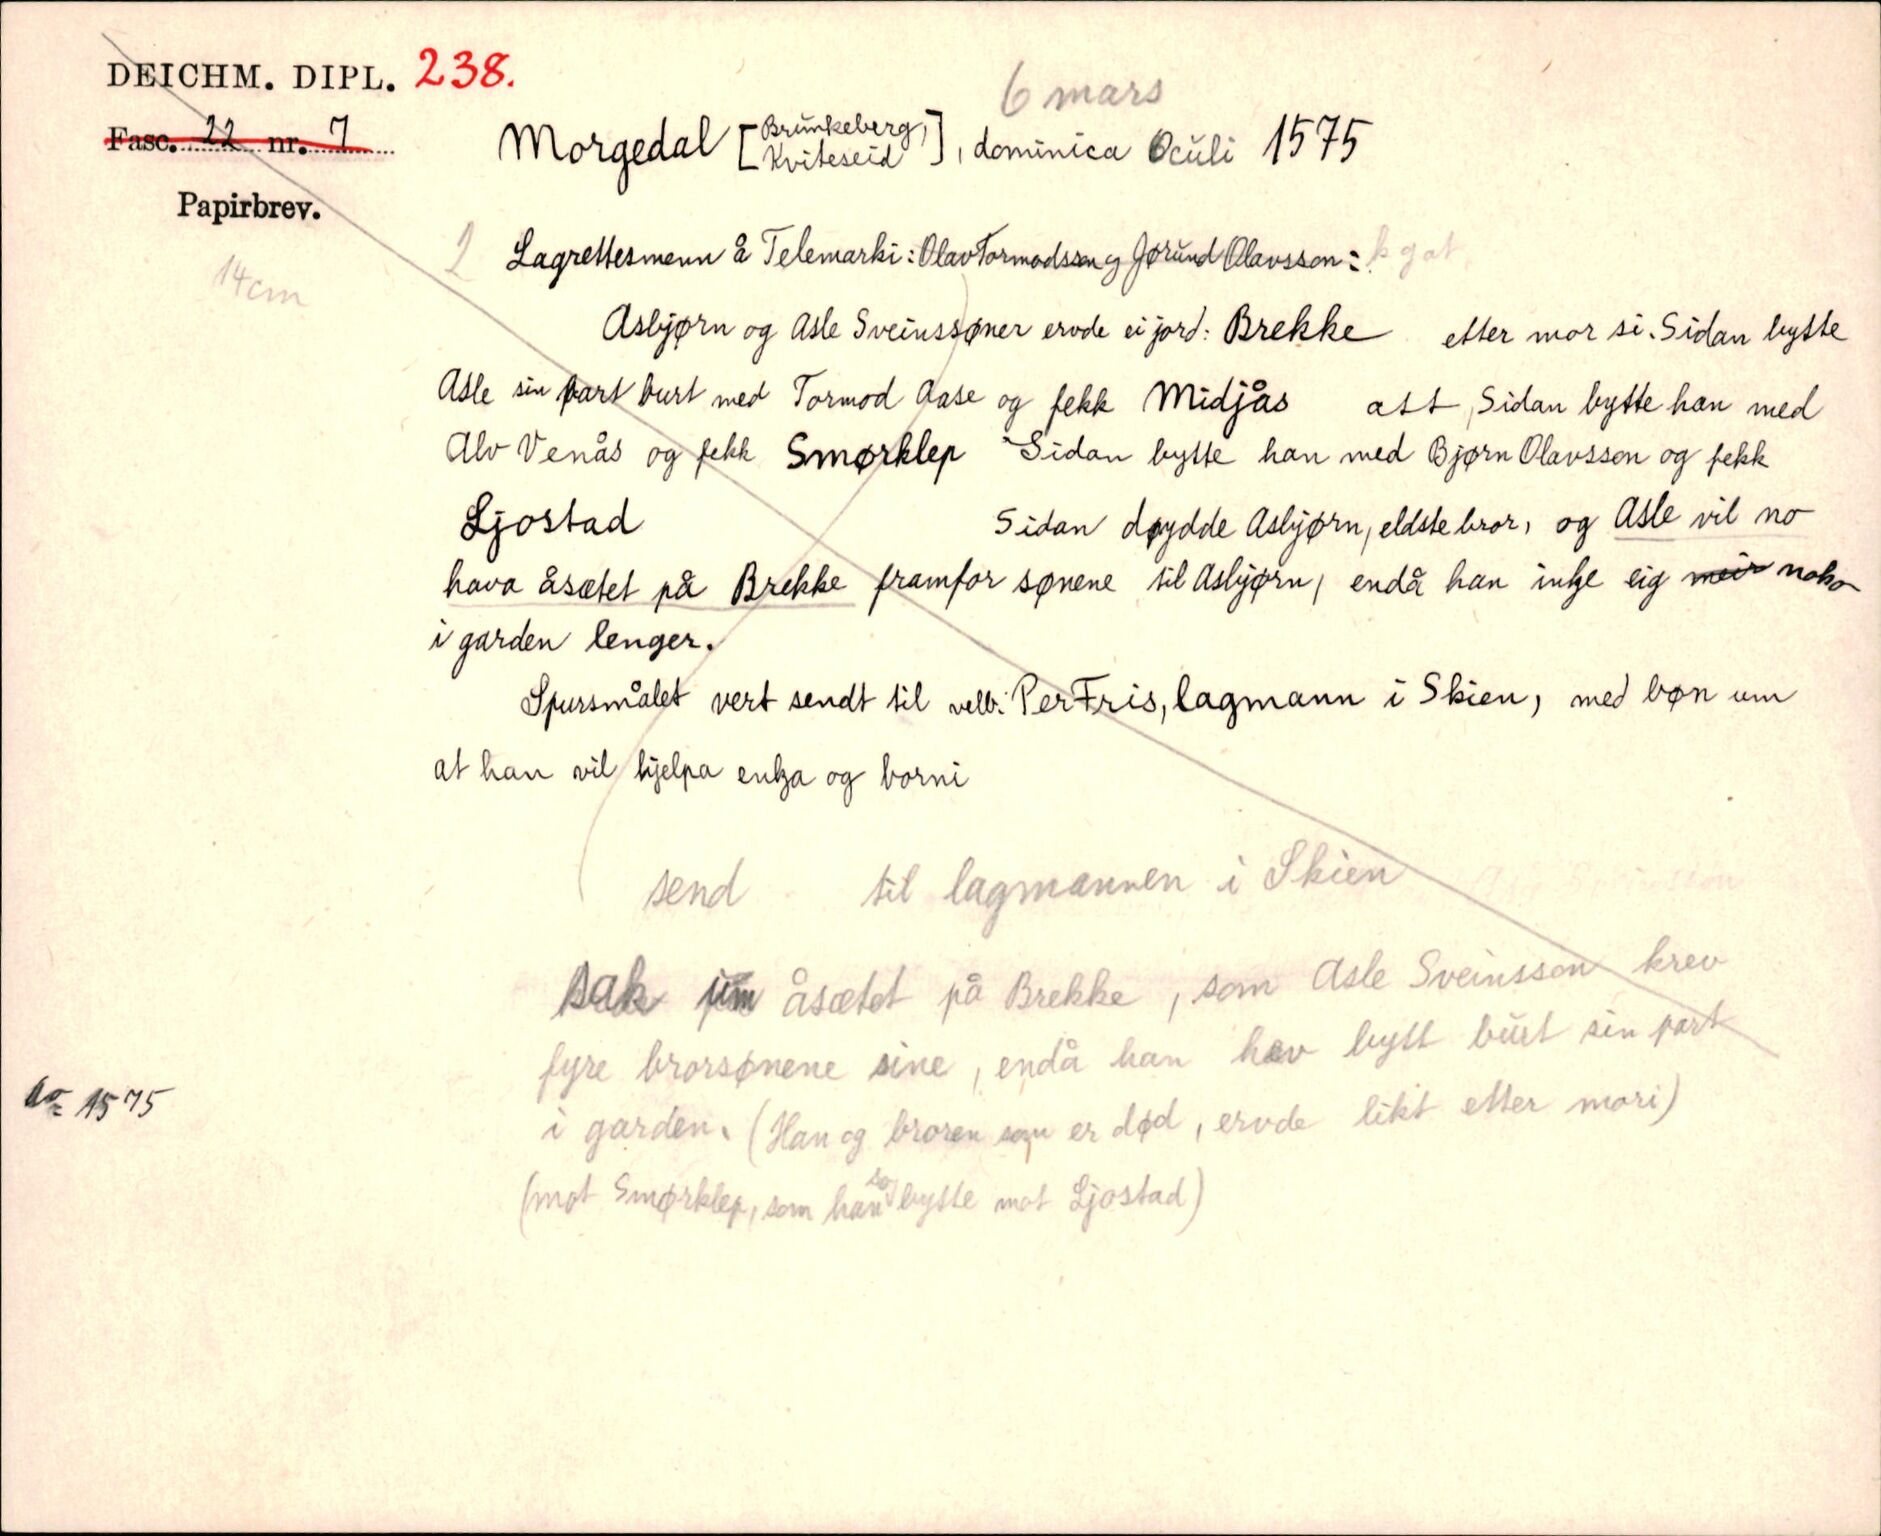 DEICHM. DIPL. 238.
6 mars
Fasc. 22 nr. 7
Morgedal [Brunkeberg, Kviteseid], dominica Oculi 1575
Papirbrev.
14 cm
2 Lagrettesmenn å Telemarki: Olav Tormodsson og Jørund Olavsson:
Asbjørn og Asle Sveinssøner ervde ei jord: Brekke etter mor si. Sidan bytte
Asle sin part burt med Tormod Aase og fekk Midjås att, Sidan bytte han med
Alv Venås og fekk Smørklep Sidan bytte han med Bjørn Olavsson og fekk
Ljostad Sidan døydde Asbjørn, eldste bror, og Asle vil no
hava åsætet på Brekke framfor sønene til Asbjørn, endå han inkje eig meir noko
i garden lenger.
Spursmålet vert sendt til velb. Per Fris, lagmann i Skien, med bøn um
at han vil hjelpa enkja og borni
send til lagmannen i Skien
sak um åsætet på Brekke, som Asle Sveinsson krev
fyre brorsønene sine, endå han hev bytt burt sin part
i garden. (Han og broren som er død, ervde likt etter mori)
(mot Smørklep, som han so bytte mot Ljostad)
ao 1575